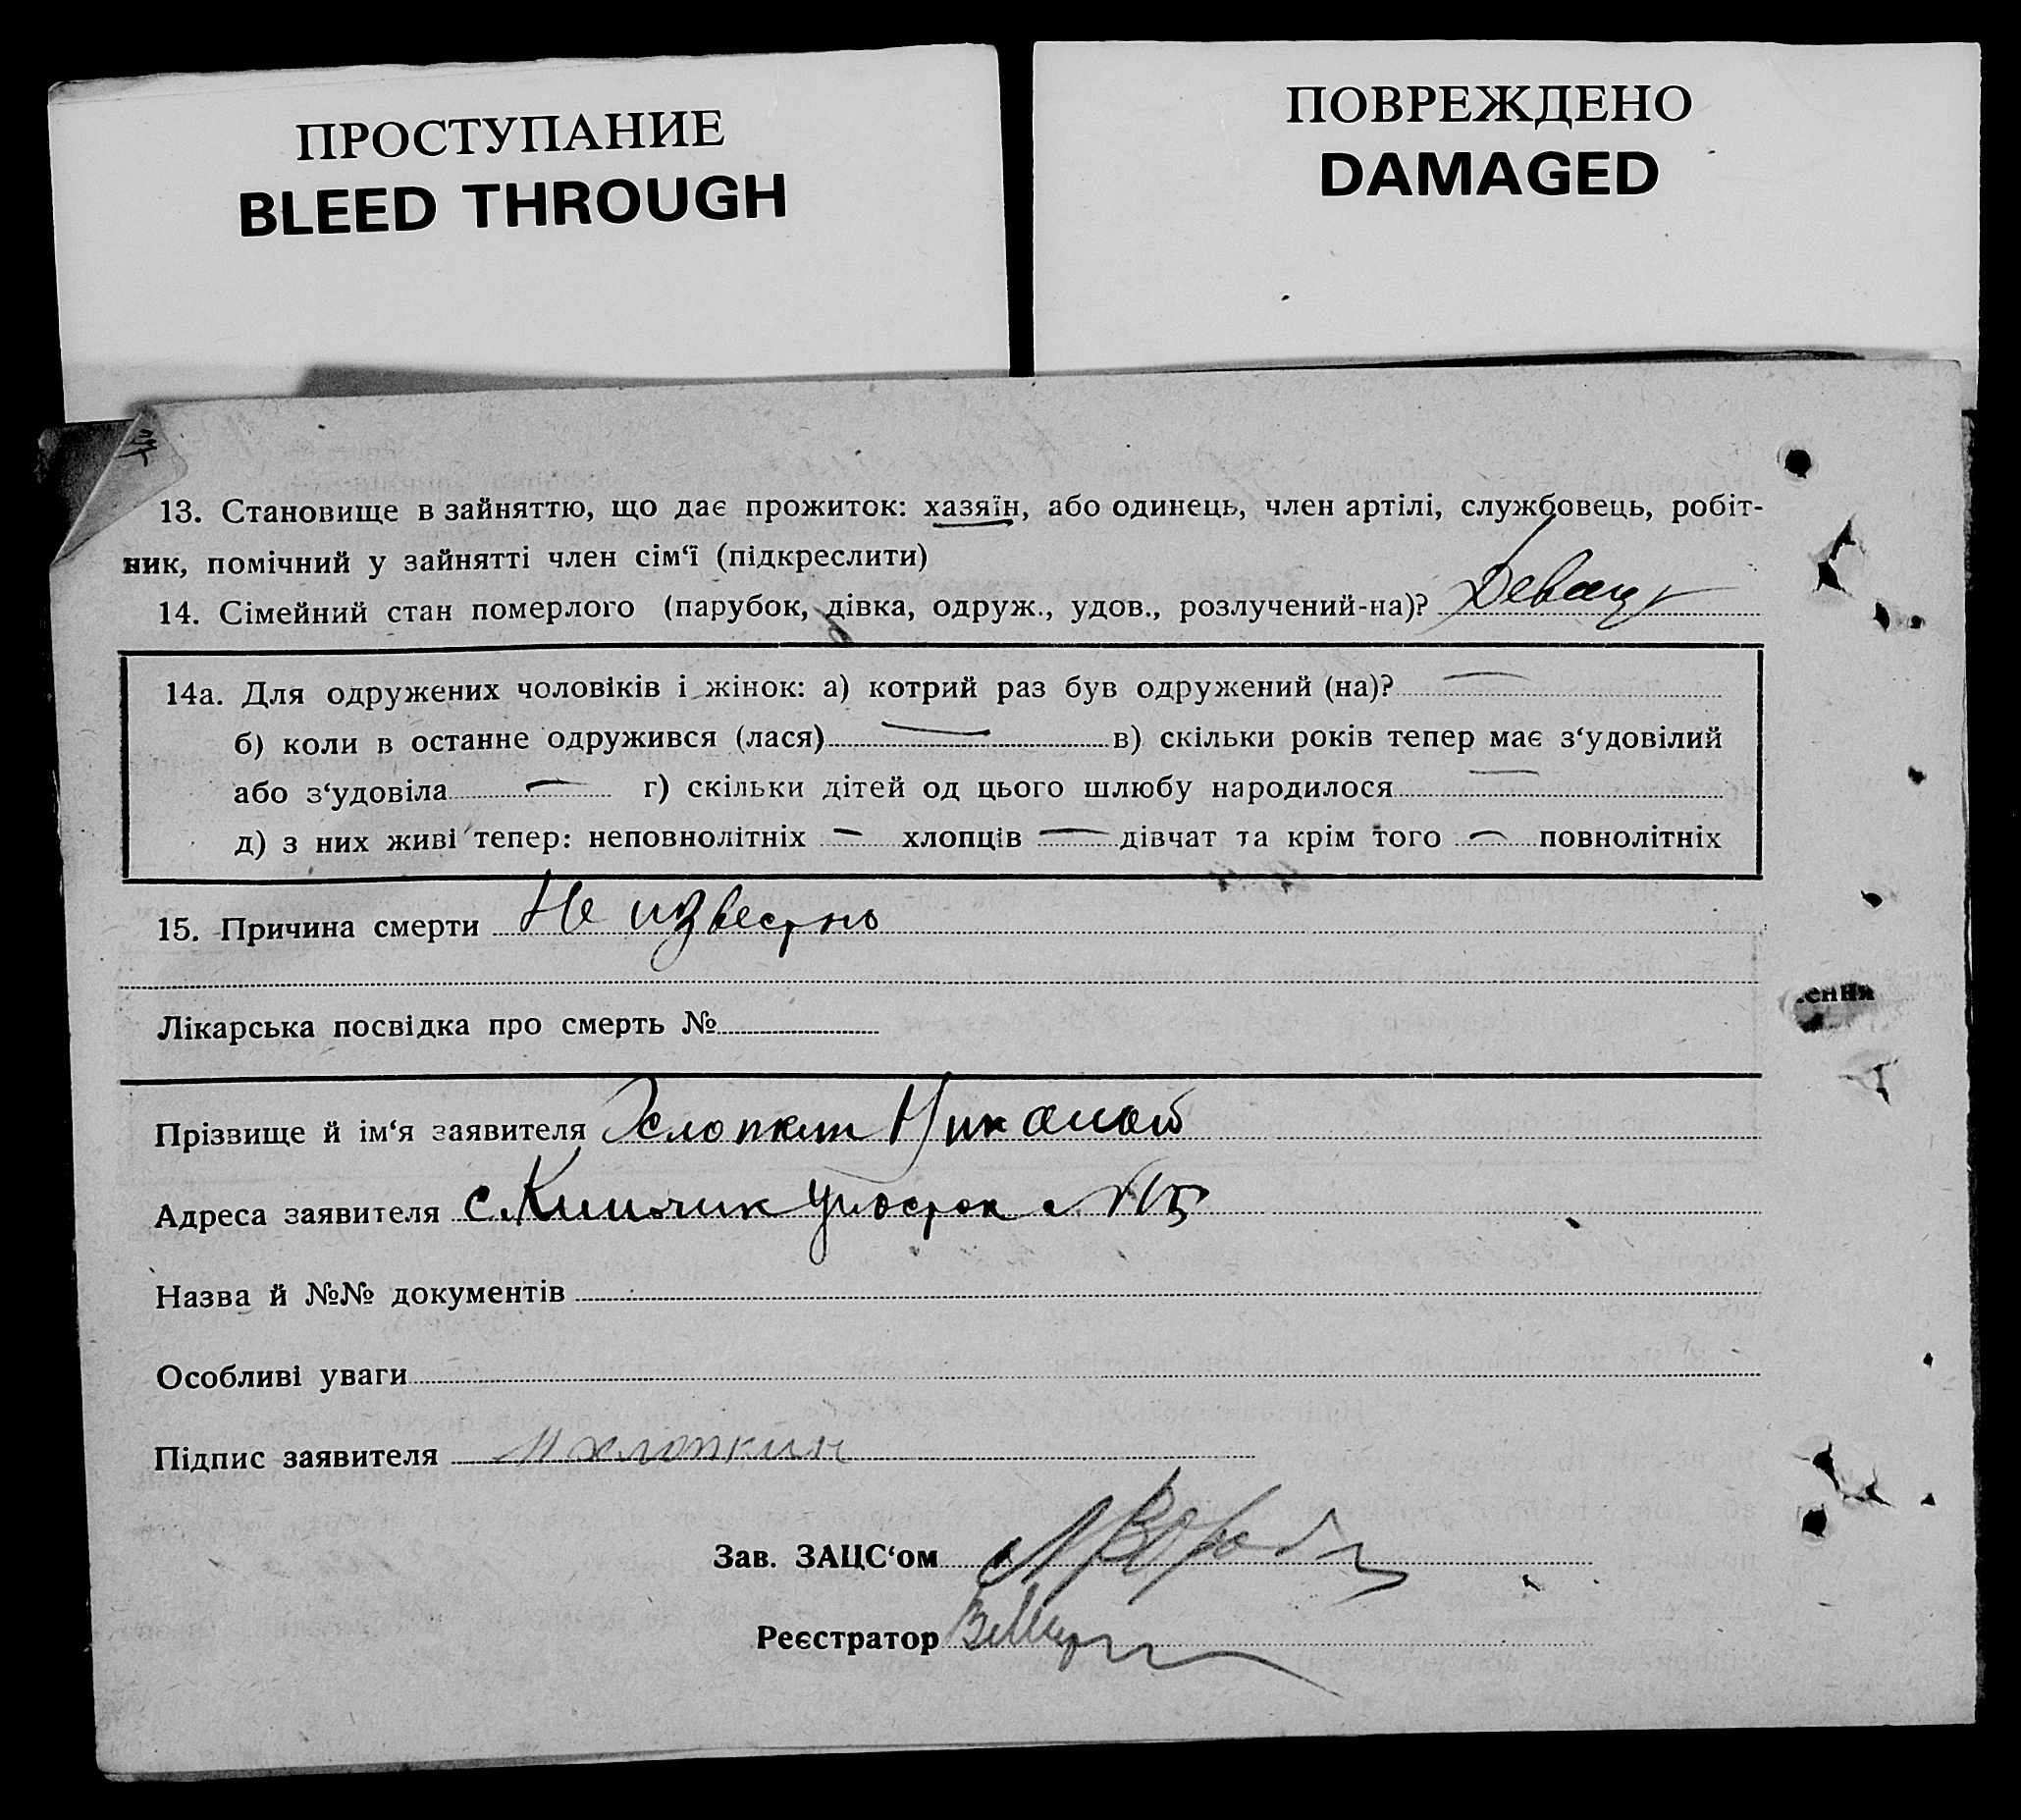 ПРОСТУПАНИЕ
BLEED THROUGH
ПОВРЕЖДЕНО
DAMAGED
13. Становище в зайняттю, що дає прожиток: хазяїн, або одинець, член артілі, службовець, робіт-
ник, помічний у зайнятті член сім‘ї (підкреслити)
14. Сімейний стан померлого (парубок, дівка, одруж., удов., розлучений-на)?
14а. Для одружених чоловіків і жінок: а) котрий раз був одружений (на)? —
б) коли в останне одружився (лася) — в) скільки років тепер має з‘удовілий
або з‘удовіла — г) скільки дітей од цього шлюбу народилося —
д) з них живі тепер: неповнолітніх — хлопців — дівчат та крім того — повнолітніх
15. Причина смерти Не известно
Лікарська посвідка про смерть №
Прізвище й ім‘я заявителя
Адреса заявителя с.
Назва й №№ документів
Особливі уваги
Підпис заявителя Хлопкин
Зав. ЗАЦС‘ом
Реєстратор
ення